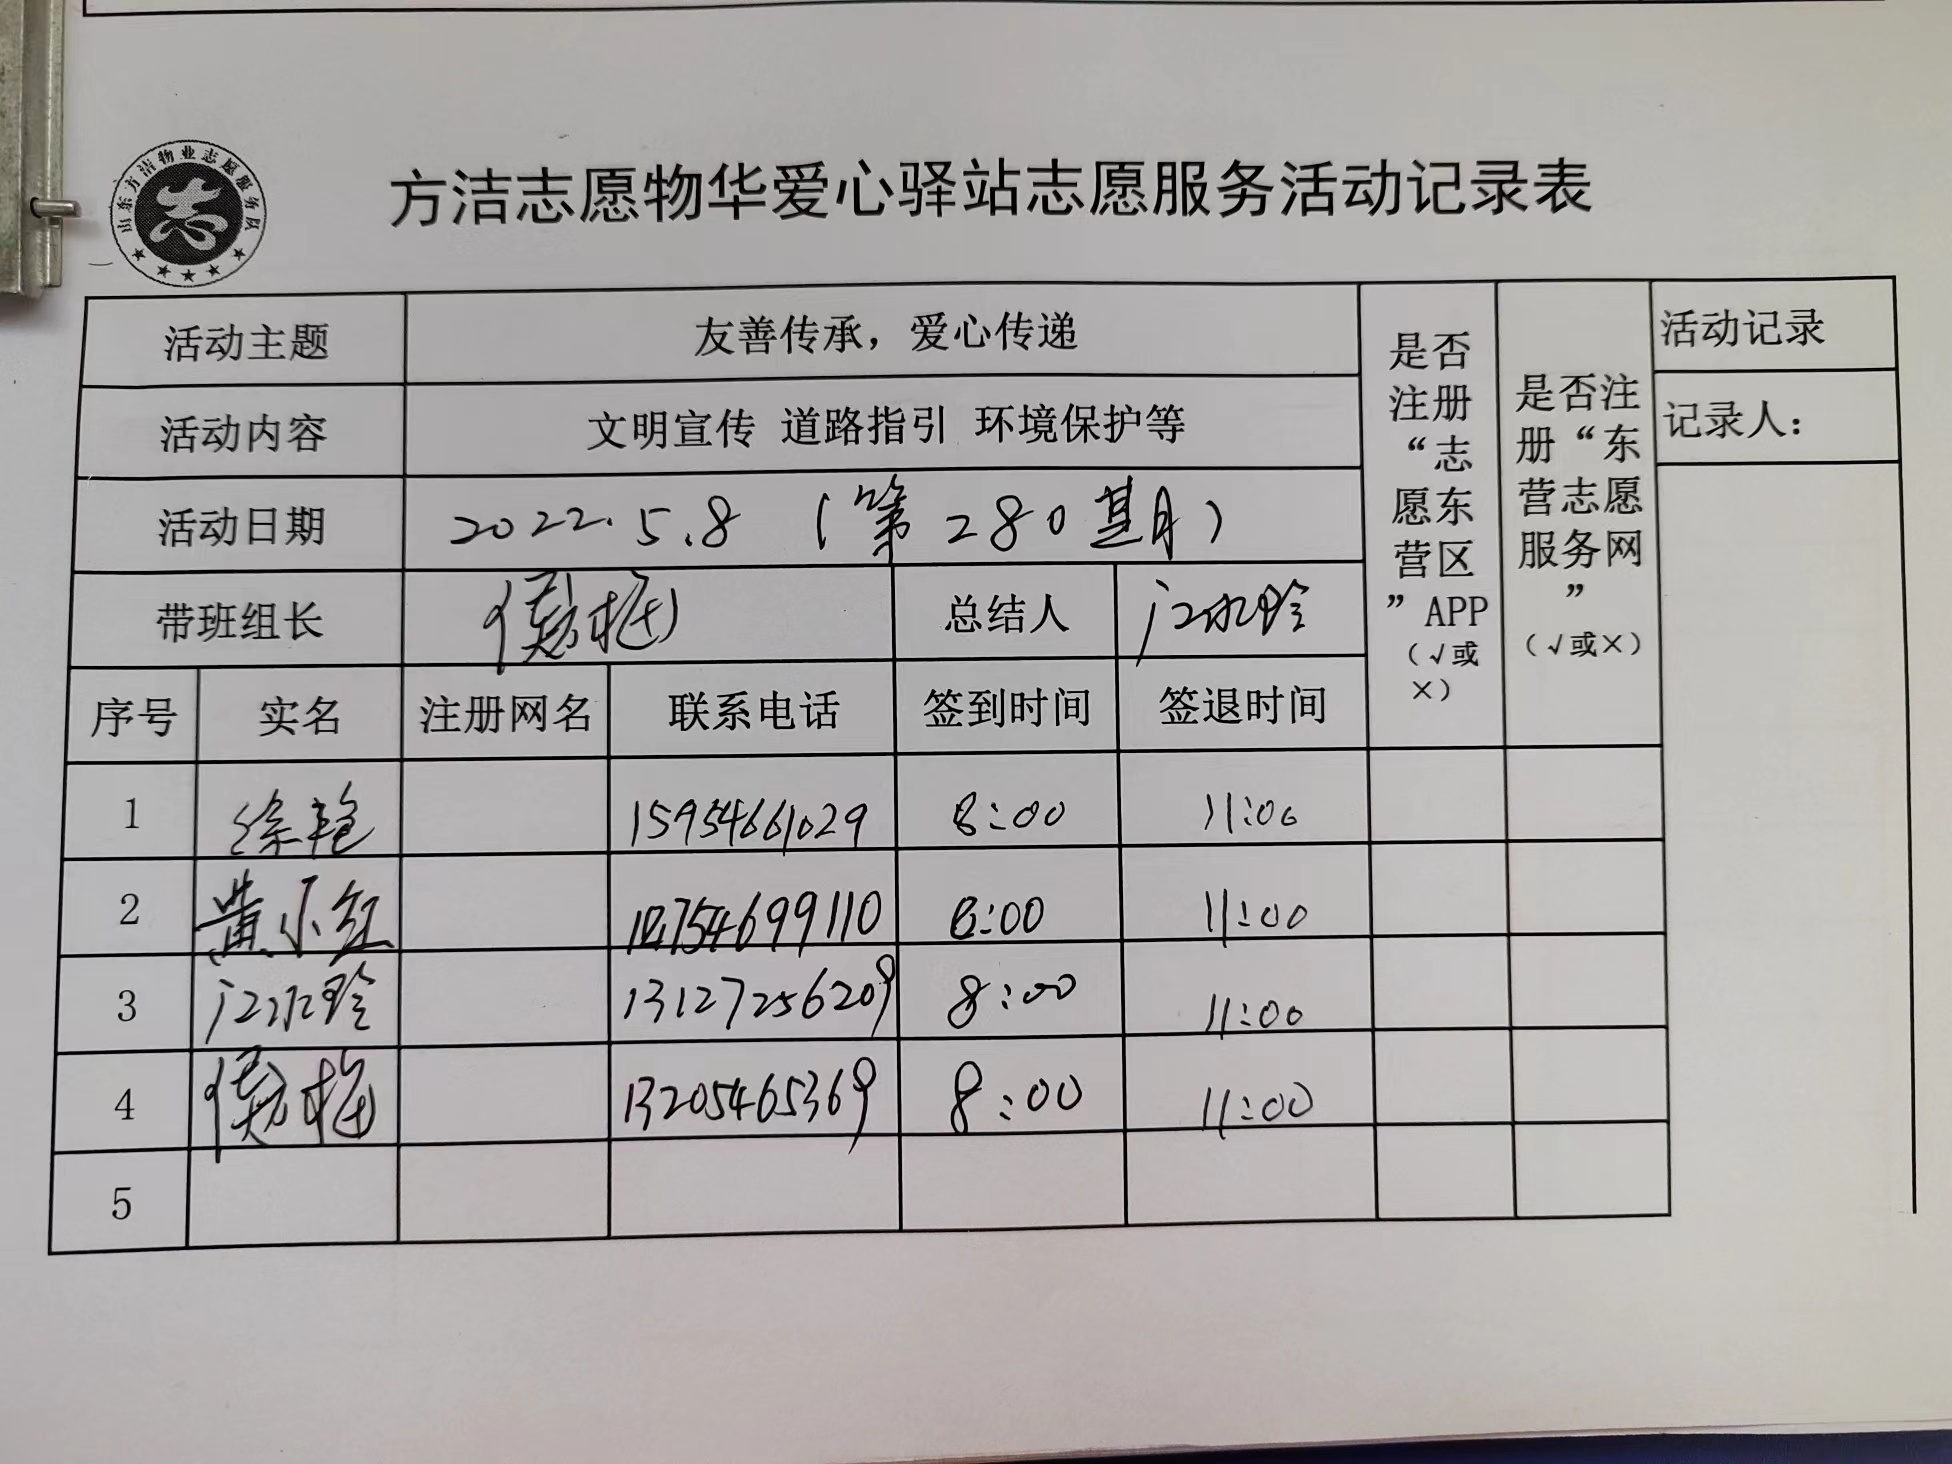 山东方洁物业志愿服务队
志
方洁志愿物华爱心驿站志愿服务活动记录表
活动主题 友善传承，爱心传递
活动内容 文明宣传 道路指引 环境保护等
活动日期 2022.5.8 （第280期）
带班组长 总结人 江冰玲
序号 实名 注册网名 联系电话 签到时间 签退时间
是否
注册
“志
愿东
营区
”APP
（√或
×）
是否注
册“东
营志愿
服务网
”
（√或×）
活动记录
记录人：
1 徐艳 15954661029 8:00 11:00
2 黄小红 8:00 11:00
3 江冰玲 13127256209 8:00 11:00
4 13205465369 8:00 11:00
5